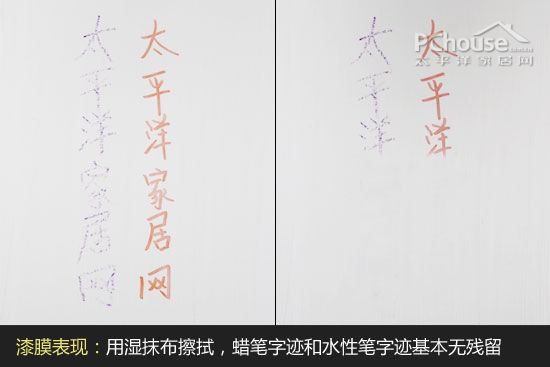 太平洋家居网
太平洋家居网
太平洋
太平洋
PChouse.com.cn
太平洋家居网
漆膜表现：用湿抹布擦拭，蜡笔字迹和水性笔字迹基本无残留